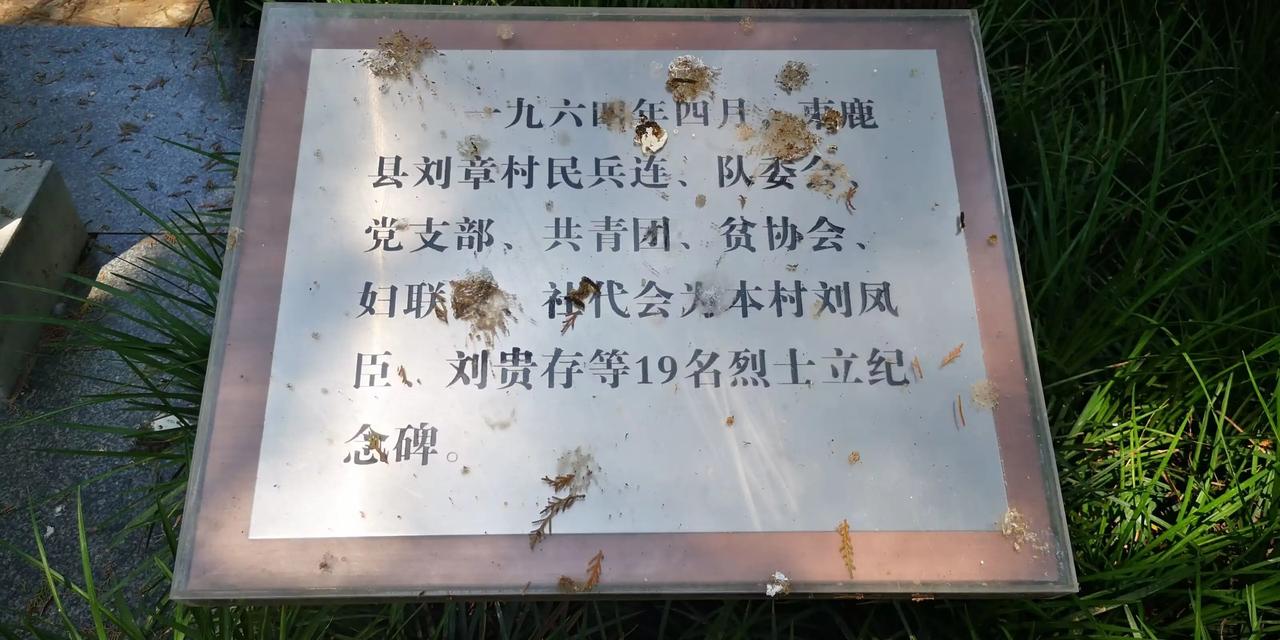 一九六四年四月，束鹿
县刘章村民兵连、队委会、
党支部、共青团、贫协会、
妇联 社代会为本村刘凤
臣、刘贵存等19名烈士立纪
念碑。